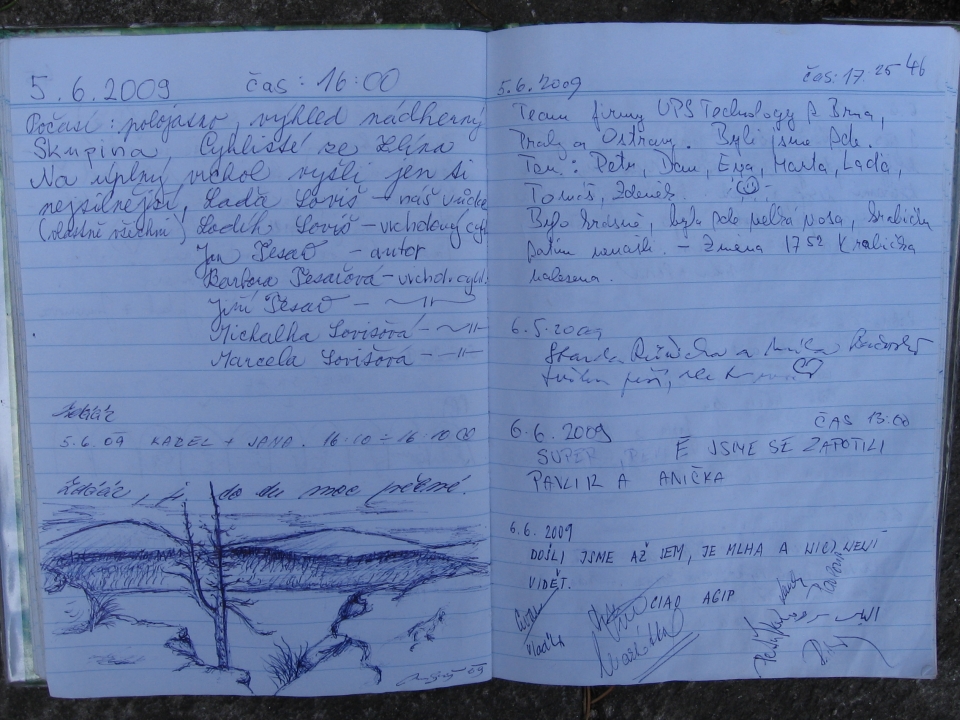 5.6.2009 čas: 16:00
Počasí: polojasno, výhled nádherný
Skupina, Cyklisté ze Zlína
Na úplný vrchol vyšli jen ti
nejsilnější, Laďa Loviš - náš vůdce
(vlastně všichni) Ladik Loviš - vrcholový cykl.
Jan Pesař - autor
Barbora Pesařová - vrchol. cykl.
Jiří Pesař - -11-
Michalka Lovišová - -11-
Marcela Lovišová - -11-
5.6.09 KAREL + JANA. 16:10 ÷ 16:10:00
Zdáár, je to du moc pěkné.
09
46
5.6.2009 čas: 17.25
Team firmy UPS Technology z Brna,
Prahy a Ostravy. Byli jsme zde.
Team: Petr, Dan, Eva, Marta, Lada,
Tomáš, Zdeněk
Bylo krásně, byla zde velká kosa, krabičku
zatím nenašli. - Změna 17 52 Krabička
nalezena.
6.5.2009
Standa Růžička a
6.6.2009 ČAS 13:00
SUPER, E JSME SE ZAPOTILI
PAVLIK A ANIČKA
6.6.2009
DOŠLI JSME AŽ SEM, JE MLHA A NIC NENÍ
VIDĚT.
CIAO AGIP
Vlaďka